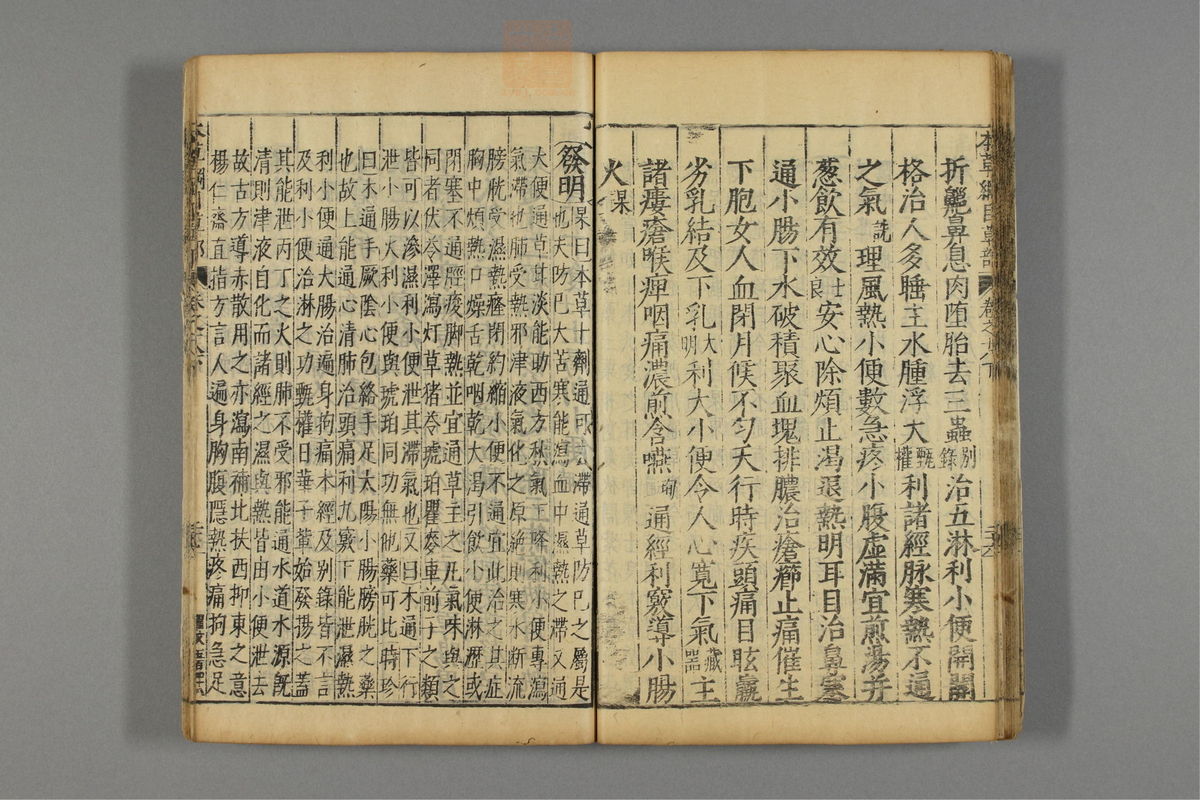 本草綱目草部 卷之十八下
折齆鼻息肉堕胎去三蟲別錄治五淋利小便開關
格治人多睡主水腫浮大甄權利諸經脉寒熱不通
之氣詵理風熱小便數急疼小腹虛滿宜煎湯并
葱飲有效士良安心除煩止渴退熱明耳目治鼻塞
通小腸下水破積聚血塊排膿治瘡癤止痛催生
下胞女人血閉月候不匀天行時疾頭痛目眩羸
劣乳結及下乳大明利大小便令人心寬下氣藏器主
諸瘻瘡喉痺咽痛濃煎含嚥珣通經利竅導小腸
火杲
發明杲曰本草十劑通可去滯通草防巳之屬是
也夫防巳大苦寒能瀉血中濕熱之滯又通
大便通草甘淡能助西方秋氣下降利小便專瀉
氣滯也肺受熱邪津液氣化之原絶則寒水断流
膀胱受濕熱癃閉約縮小便不通宜此治之其症
胸中煩熱口燥舌乾咽乾大渴引飲小便淋瀝或
閉塞不通脛痠脚熱並宜通草主之凡氣味與之
同者伏令澤瀉灯草猪令琥珀瞿麥車前子之類
皆可以滲濕利小便泄其滯氣也又曰木通下行
泄小腸火利小便與琥珀同功無他藥可比時珍
曰木通手厥陰心包絡手足太陽小腸膀胱之藥
也故上能通心清肺治頭痛利九竅下能泄濕熱
利小便通大腸治遍身拘痛本經及别錄皆不言
及利小便治淋之功甄權日華子輩始發揚之蓋
其能泄丙丁之火則肺不受邪能通水道水源既
清則津液自化而諸經之濕與熱皆由小便泄去
故古方導赤散用之亦瀉南補北扶西抑東之意
楊仁齋直指方言人遍身胸腹隱熱疼痛拘急足